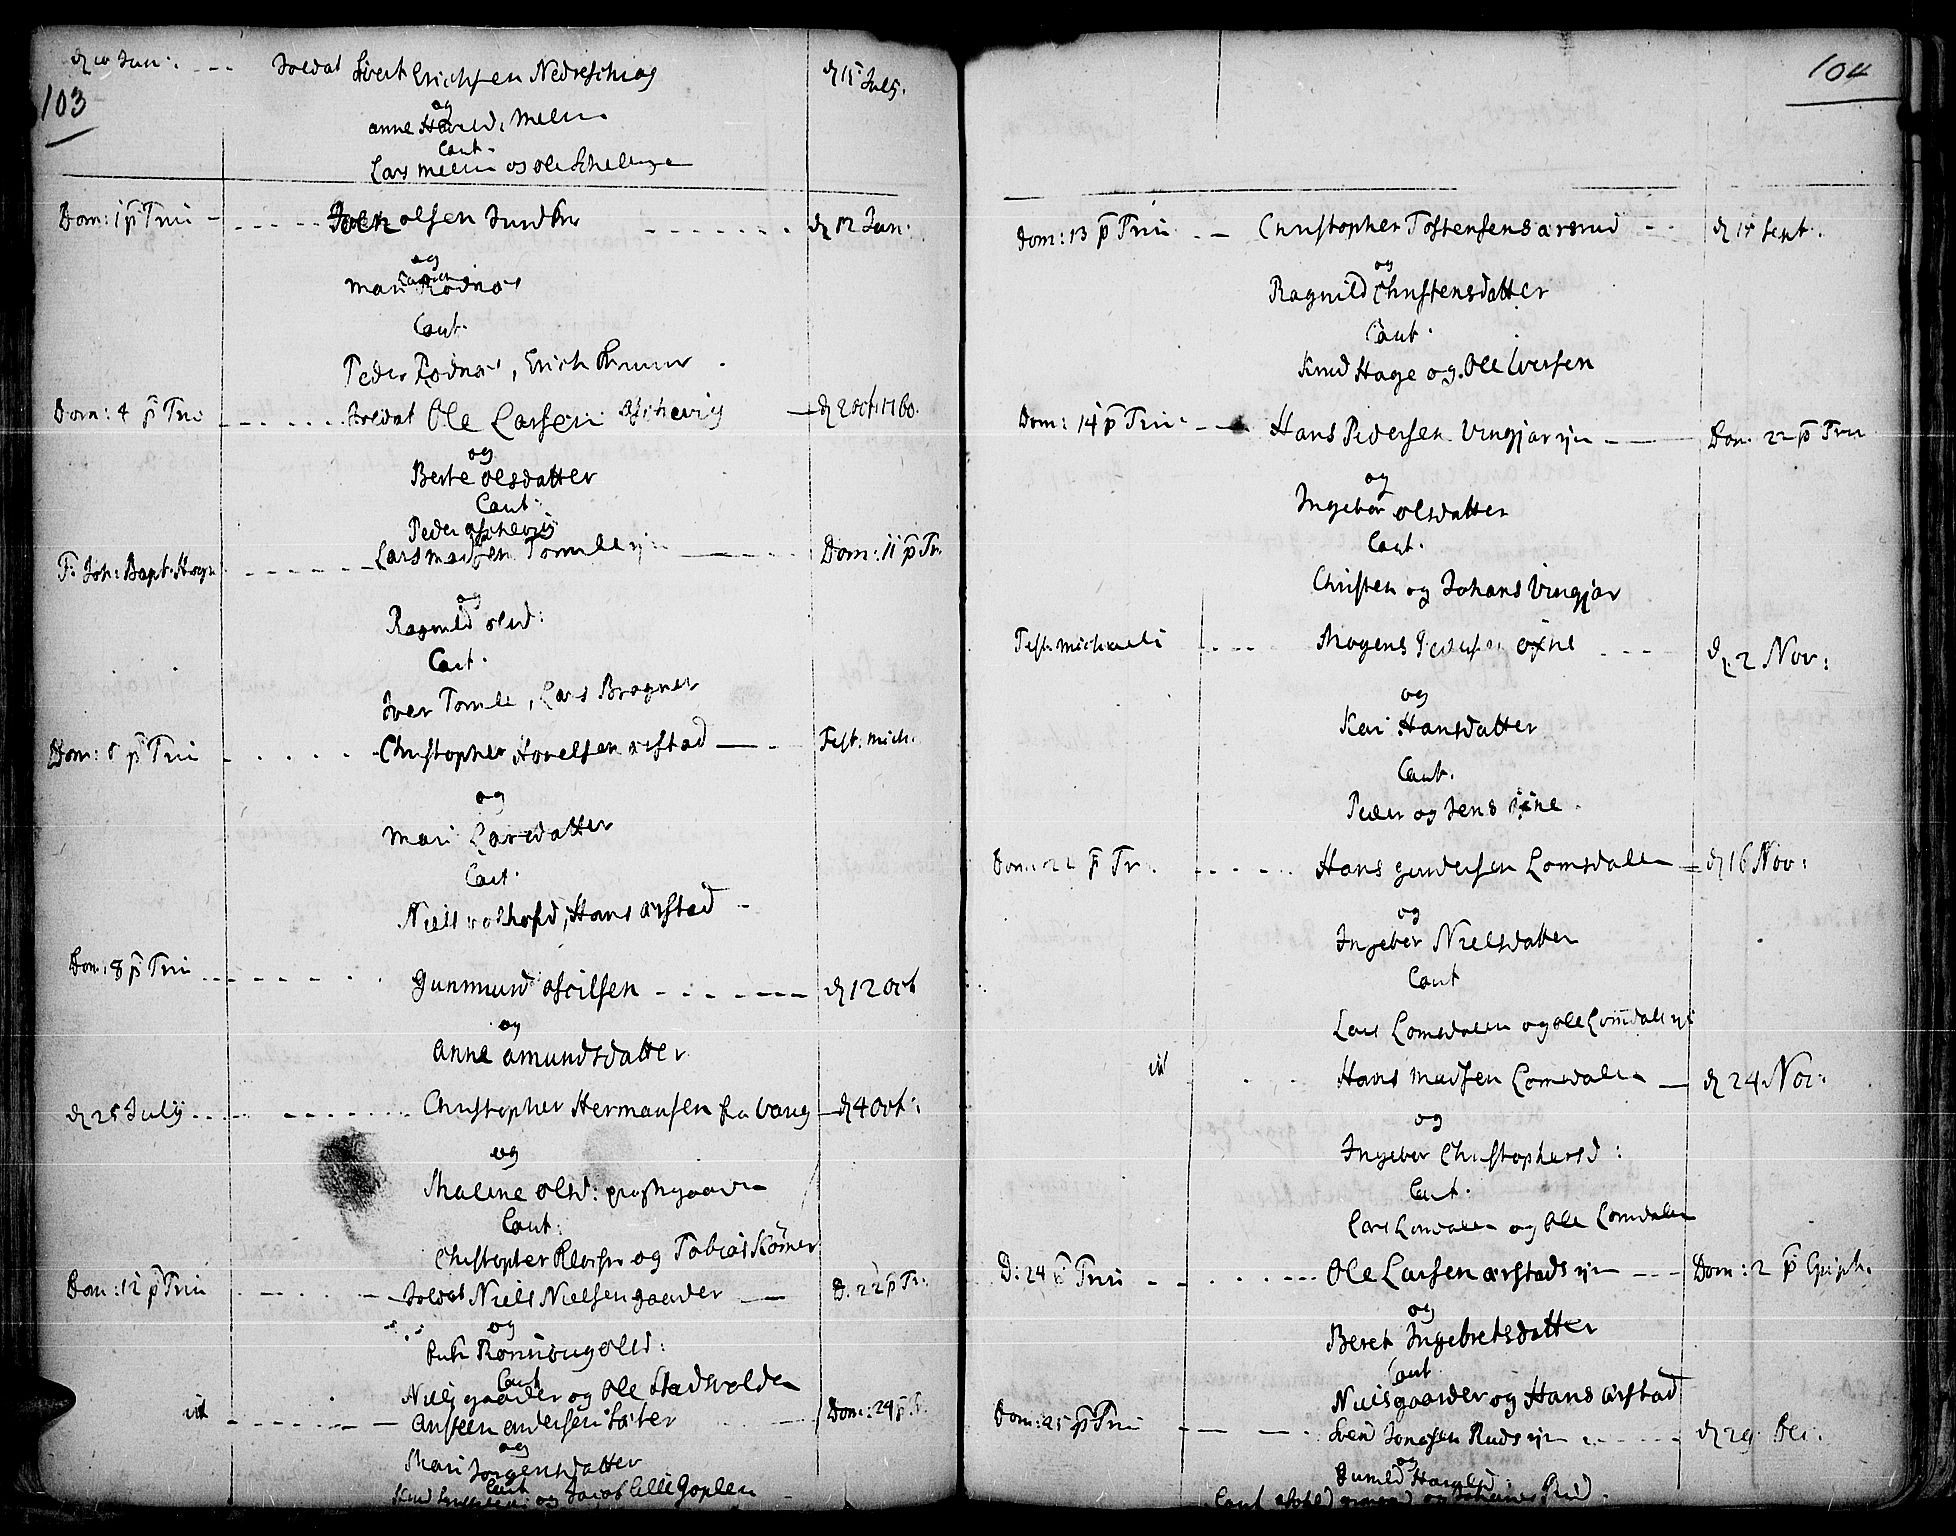 103
d 10 Jun:
Soldat Sivert Erichsen Nedreschiag
d 15 July.
og
anne Havrd. Melin
Caut.
Lars Melin og Ole
Dom: 1 p Trin
olsen
d 12 Jun.
og
Mari Rødnæs
Caut.
Peder Rødnæs, Erich
Dom: 4 p Tri
Soldat Ole Larsen Aschevig
d 2 oct. 1760.
og
Berte olsdatter
Caut:
Peder aschevig
F. Joh: Bapt.
Lars Madsen Tomle
Dom: 11 p Tr.
og
Ragnild olsd:
Caut.
Iver Tomle, Lars Bragner
Dom: 5 p Trin
Christopher Hovelsen ærstad
Fest. Mich.
og
Mari Larsdatter
Caut.
Niels, Hans ærstad
Dom: 8 p Trin
Gunmund
d 12 oct
og
Anne amundsdatter
d 25 July
Christopher Hermansen fra Vang
d 4 oct:
og
Malene olsd:
Caut:
Christopher og Tobias Kømer
Dom: 12 p Trin
Soldat Niels Nielsen gaarder
D. 22 p Tr:
og
Rønnoug olsd:
Caut
Niels gaarder og Ole Stadsvolden
id
ansteen andersen Sæter
Dom: 24 p T.
og
Mari Jorgensdatter
Caut
Knud og Jacob Lille Goplen
104
Dom: 13 p Trin
Christopher Tostensens ærsrud
d 15 Sept.
og
Ragnild Christensdatter
Caut.
Knud Hage og Ole Iversen
Dom: 14 p Trin
Hans Pedersen Vingjar
Dom. 22 p Trin
og
Ingebor olsdatter
Caut.
Christen og Johans Vingjar
Fest. Michaeli
Mogens Pedersen øxne
d. 2 Nov:
og
Kari Hansdatter
Caut.
Peder og Jens øxne.
Dom: 22 p Tr.
Hans gundersen Lomsdalen
d 16 Nov:
og
Ingebor Nielsdatter
Caut
Lars Lomsdalen og Ole Lomsdal
id
Hans Madsen Lomsdalen
d 24 Nov:
og
Ingebor Christophersd:
Caut.
Lars Lomdalen og Ole Lomdalen
D: 24 p Trin
Ole Larsen ærstads
Dom: 2 p Epiph.
og
Beret Ingebretsdatter
Caut.
Niels gaarder og Hans ærstad
Dom: 25 p Trin
Svend Jonasen Ruds
d 29 Dec.
og
Gunild
Caut og Johannes Rud.